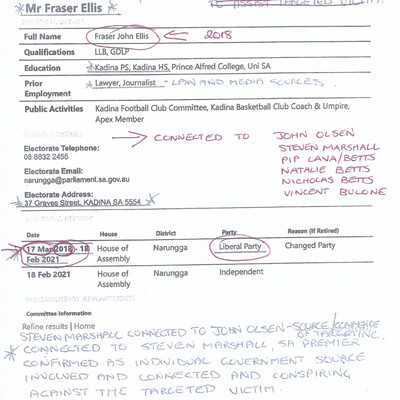 TO ASSIST TARGETED VICTIM.
*Mr Fraser Ellis*
Full Name Fraser John Ellis 2018
Qualifications LLB, GDLP
Education *Kadina PS, Kadina HS, Prince Alfred College, Uni SA
Prior Employment *Lawyer, Journalist - LAW AND MEDIA SOURCES.
Public Activities Kadina Football Club Committee, Kadina Basketball Club Coach & Umpire, Apex Member
CONNECTED TO JOHN OLSEN
Electorate Telephone:
08 8832 2455
STEVEN MARSHALL
PIP LAVA/BETTS
Electorate Email:
NATALIE BETTS
narungga@parliament.sa.gov.au
NICHOLAS BETTS
Electorate Address:
VINCENT BULONE
*37 Graves Street, KADINA SA 5554*
Date House District Party Reason (If Retired)
17 Mar 2018 - 18 Feb 2021 House of Assembly Narungga Liberal Party Changed Party
18 Feb 2021 House of Assembly Narungga Independent
Committee Information
Refine results | Home
STEVEN MARSHALL CONNECTED TO JOHN OLSEN - SOURCE/
OF TARGETING.
*CONNECTED TO STEVEN MARSHALL, SA PREMIER
CONFIRMED AS INDIVIDUAL GOVERNMENT SOURCE
INVOLVED AND CONNECTED AND CONSPIRING
AGAINST THE TARGETED VICTIM.